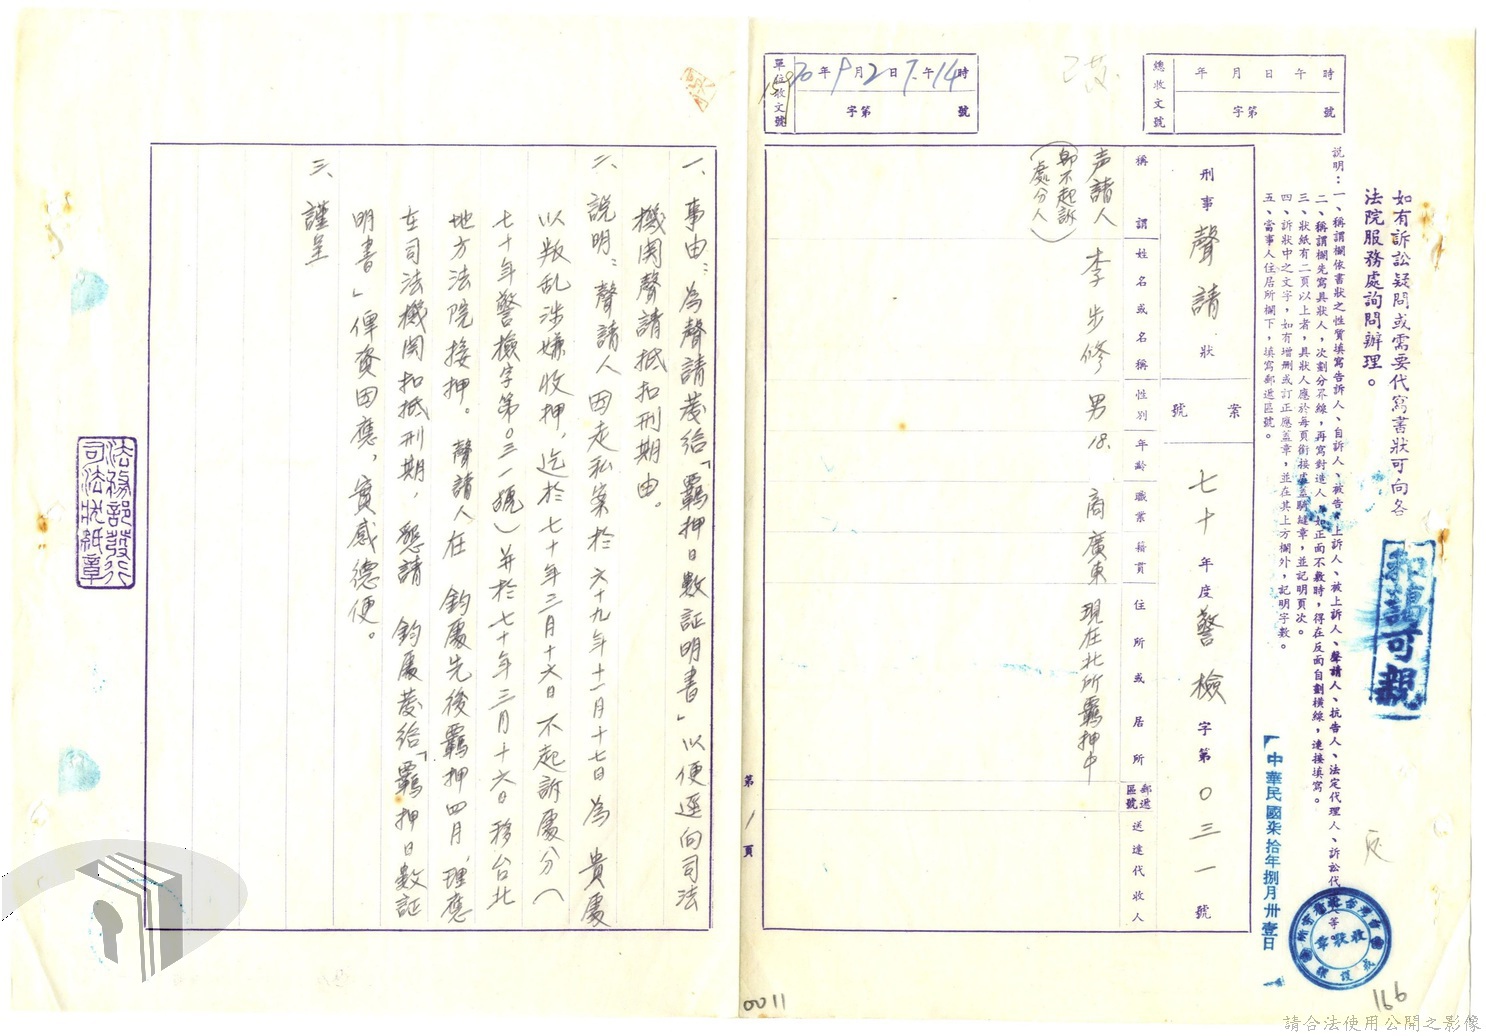 如有訴訟疑問或需要代寫書狀可向各
法院服務處詢問辦理。
說明：一、稱謂欄依書狀之性質填寫告訴人、自訴人、被告、上訴人、被上訴人、聲請人、抗告人、法定代理人、訴訟代 人等。
二、稱謂欄先寫具狀人，次劃分界線，再寫對造人，如正面不敷時，得在反面自劃橫線，連接填寫。
三、狀紙有二頁以上者，具狀人應於每頁銜接處蓋騎縫章，並記明頁次。
四、訴狀中之文字，如有增刪或訂正應蓋章，並在其上方欄外，記明字數。
五、當事人住居所欄下，填寫郵遞區號。
和藹可親
中華民國柒拾年捌月卅壹日
收狀章
166
總收文號
年 月 日 午 時
字第 號
單位收文號
159
70年9月2日下午14時
字第 號
刑事聲請狀
案號
七十年度警檢字第0三一號
稱謂
姓名或名稱
性別
年齡
職業
籍貫
住所或居所
郵遞區號
送達代收人
声請人
(即不起訴
處分人)
李步修
男
18.
商
廣東
現在北所羈押中
第1頁
0011
一、事由：為聲請發給「羈押日數証明書」以便逕向司法
機関聲請抵扣刑期由。
二、說明：聲請人因走私案於六十九年十一月十七日為 貴處
以叛乱涉嫌收押，迄於七十年三月十六日不起訴處分(
七十年警檢字第0三一號)并於七十年三月十六日移台北
地方法院接押。聲請人在 鈞處先後羈押四月，理應
在司法機関扣抵刑期，懇請 鈞處發給「羈押日数証
明書」俾資因應，實感德便。
三、謹呈
法務部發行
司法狀紙章
請合法使用公開之影像